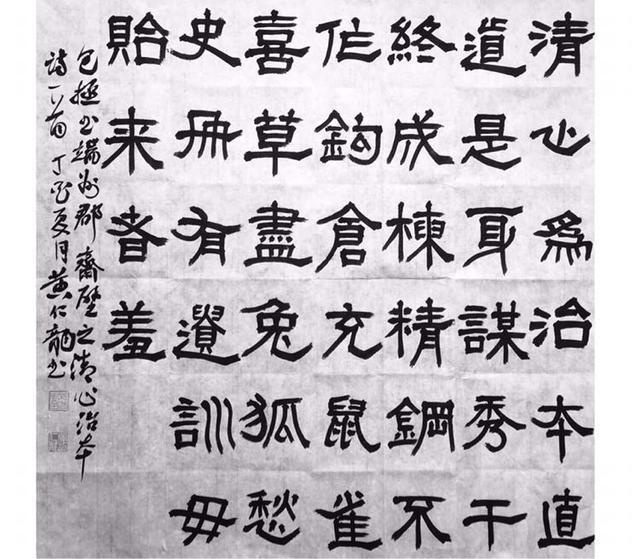 清心為治本直
道是身謀秀干
終成棟精鋼不
作鈎倉充鼠雀
喜草盡兔狐愁
史冊有遺訓毋
貽来者羞
包拯书端州郡齋壁之清心治本
詩一首 丁酉夏月黄仁龍书